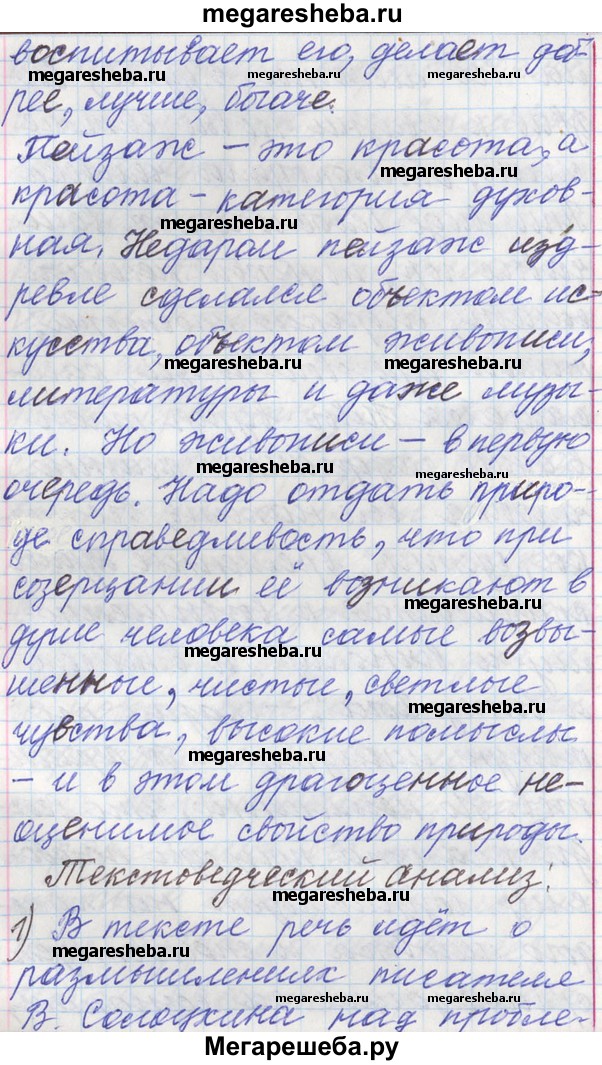 megaresheba.ru
воспитывает его, делает доб-
megaresheba.ru megaresheba.ru
рее, лучше, богаче.
Пейзаж – это красота, а
megaresheba.ru
красота – категория духов-
megaresheba.ru
ная. Недаром пейзаж изд-
ревле сделался объектом ис-
кусства, объектом живописи,
megaresheba.ru megaresheba.ru
литературы и даже музы-
ки. Но живописи – в первую
megaresheba.ru megaresheba.ru
очередь. Надо отдать приро-
де справедливость, что при
созерцании её возникают в
megaresheba.ru
душе человека самые возвы-
megaresheba.ru
шенные, чистые, светлые
чувства, высокие помыслы
megaresheba.ru
– и в этом драгоценное не-
оценимое свойство природы.
Текстоведческий анализ:
1) В тексте речь идёт о
megaresheba.ru
размышлениях писателя
megaresheba.ru
В. Солоухина над пробле-
Мегарешеба.ру